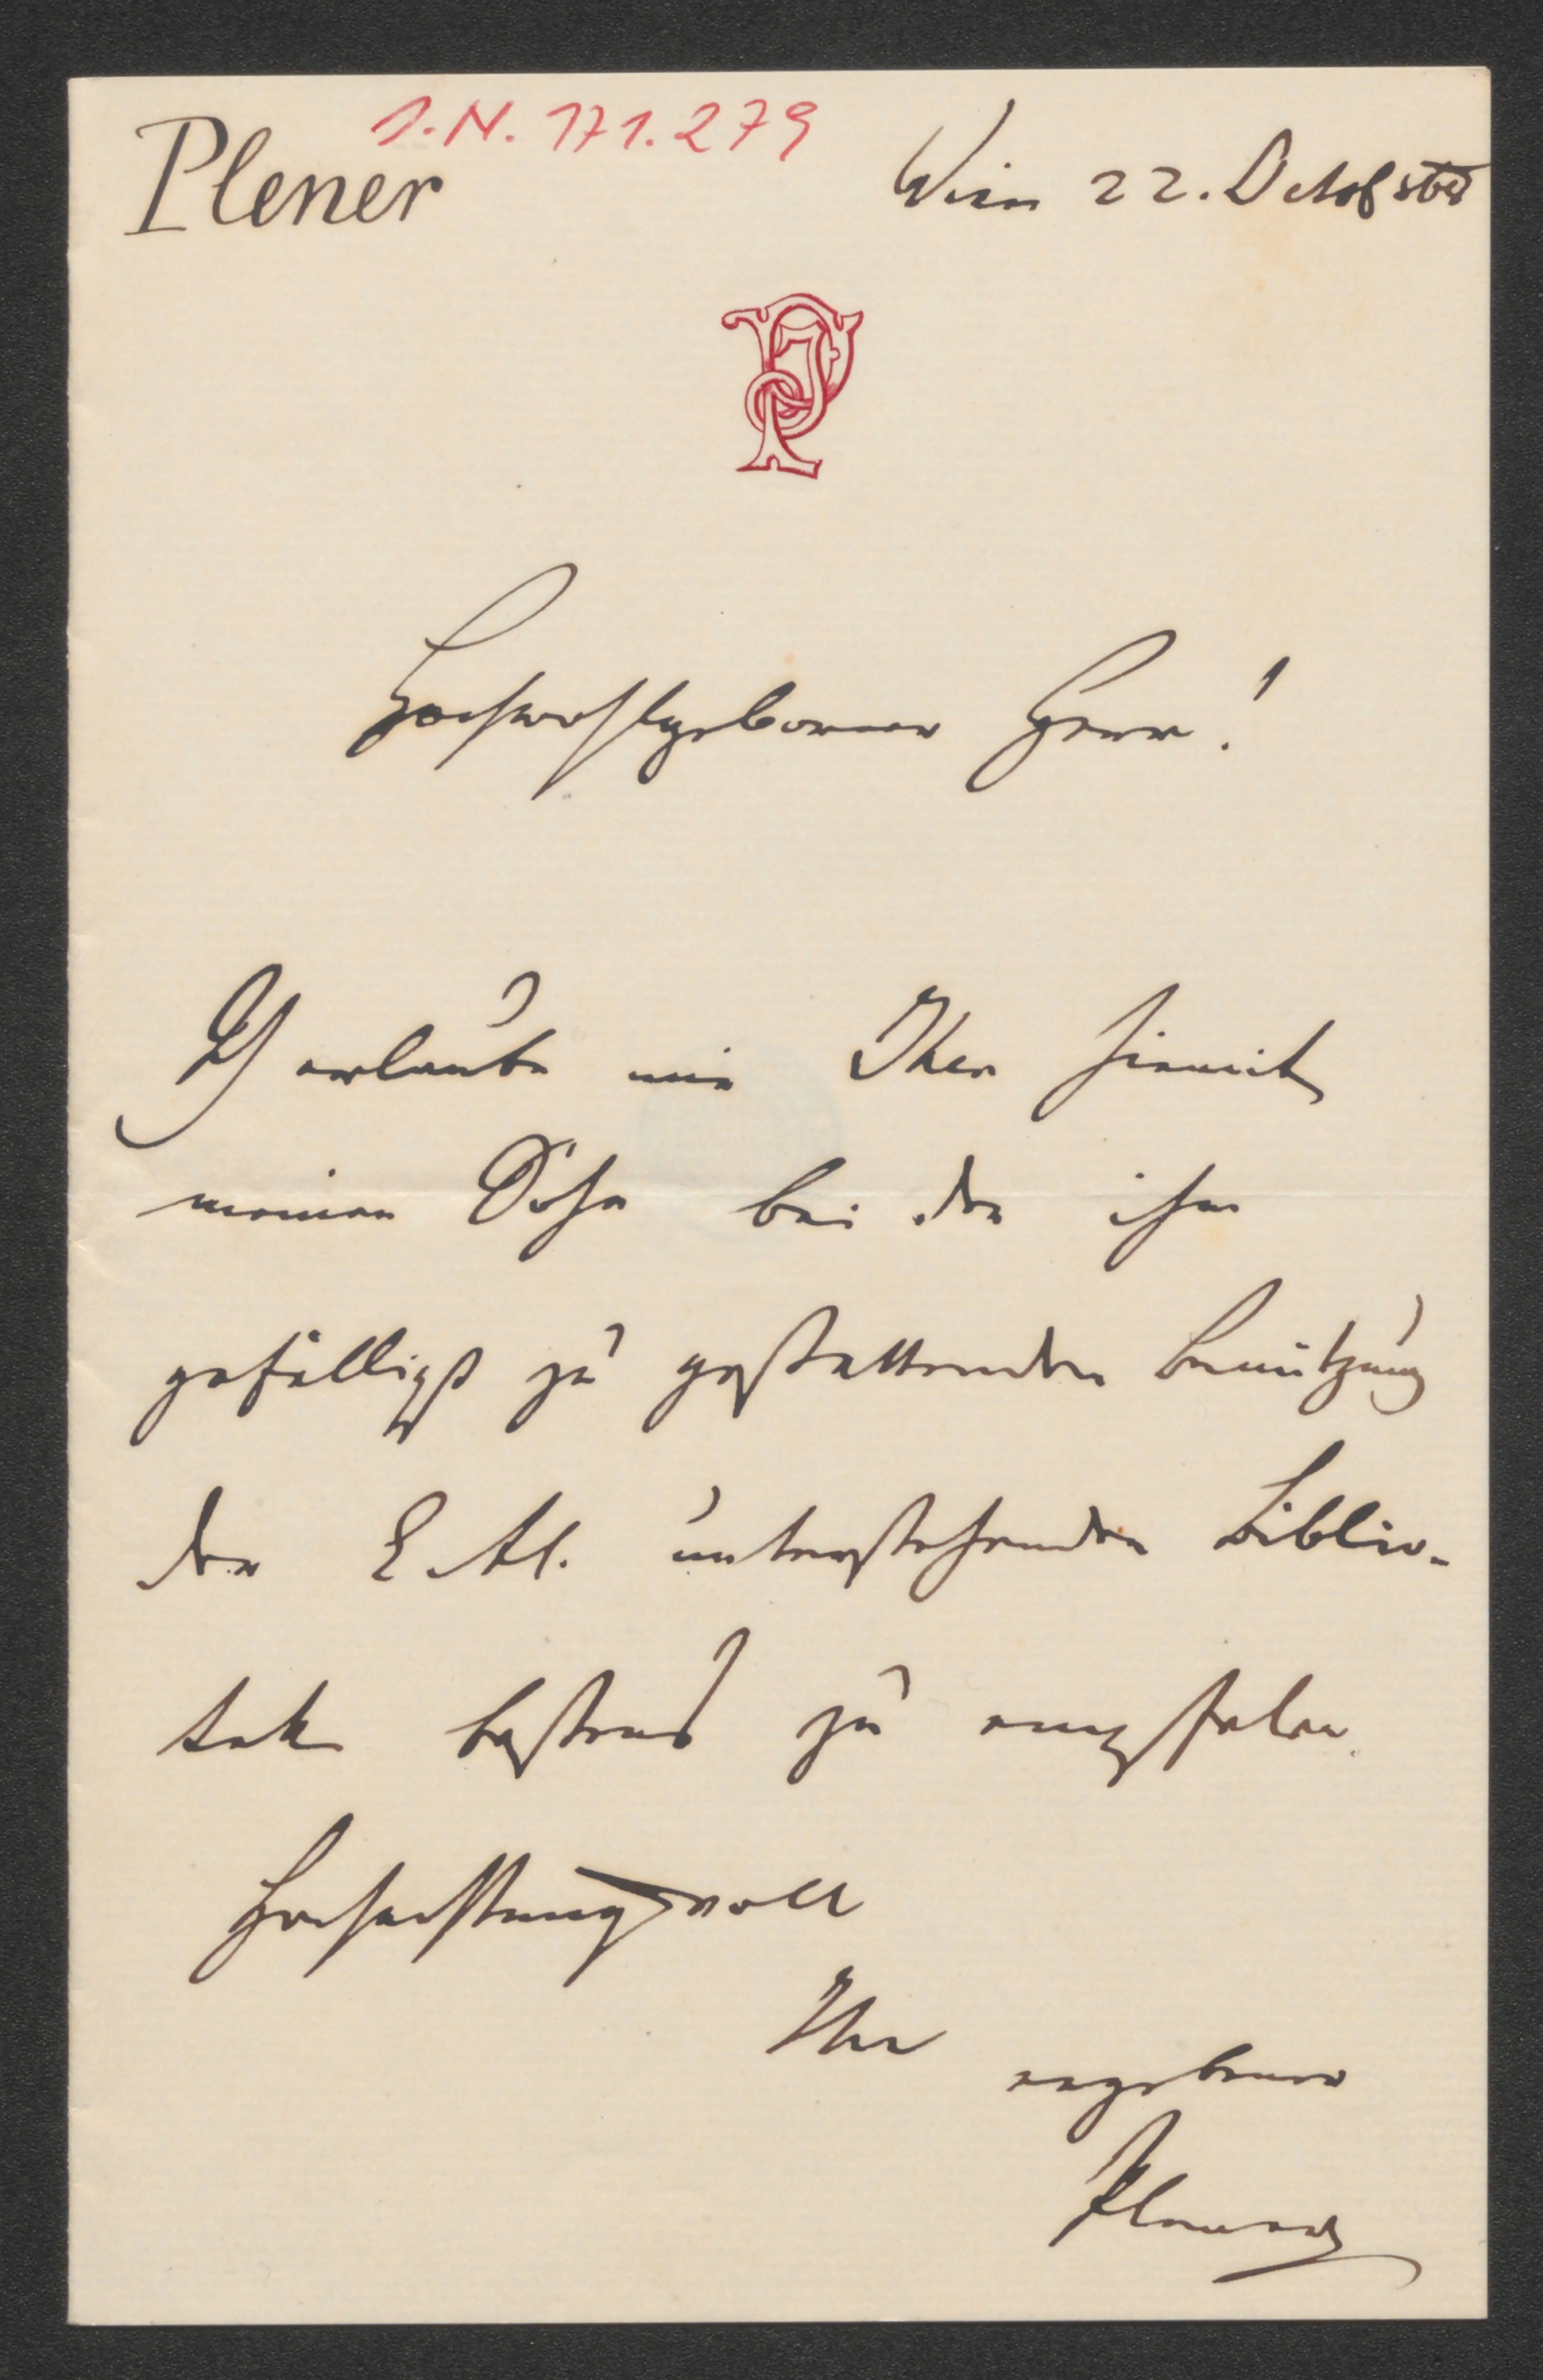 J.N. 171.279
Plener
Wien 22. October
Hochwohlgeborner Herr!
Ich erlaube mir Ihnen hiemit
meinen Sohn bei der ihm
gefälligst zu gestattenden Benützung
der E. unterstehenden Biblio-
tek bestens zu empfelen.
Hochachtungsvoll
Ihr
ergebener
Plener